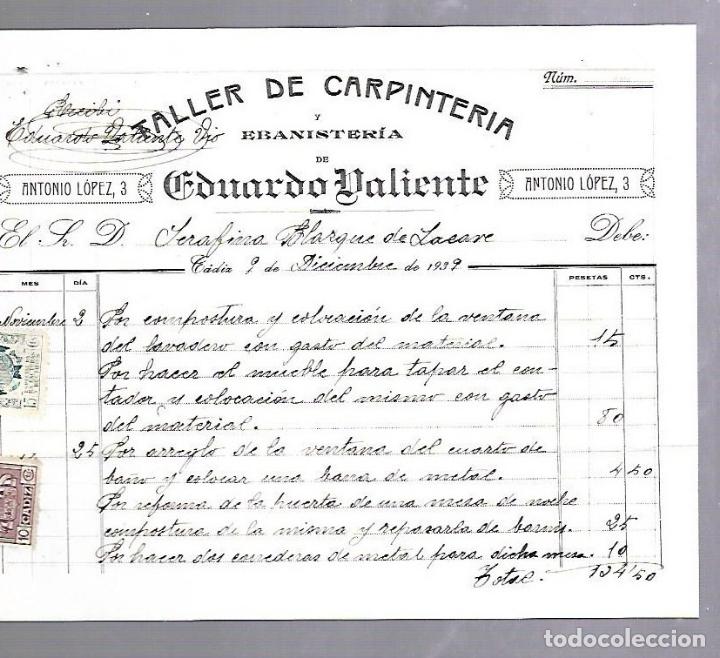 Núm.
TALLER DE CARPINTERIA
Recibí
Eduardo Valiente
Y
EBANISTERÍA
DE
ANTONIO LÓPEZ, 3
Eduardo Valiente
ANTONIO LÓPEZ, 3
El Sr. D. Serafina Blazque de Lacave Debe:
Cádiz 9 de Diciembre de 1939
MES DÍA PESETAS CTS.
Noviembre 2 Por compostura y colocación de la ventana
del lavadero con gasto del material. 15
Por hacer el mueble para tapar el con-
tador y colocación del mismo con gasto
del material. 80
25 Por arreglo de la ventana del cuarto de
baño y colocar una bana de metal. 4 50
Por reforma de la puerta de una mesa de noche
compostura de la misma y repasarla de barniz. 25
Por hacer dos correderas de metal para dicha mesa. 10
Total: 134'50
15
10
CADIZ
todocoleccion.net